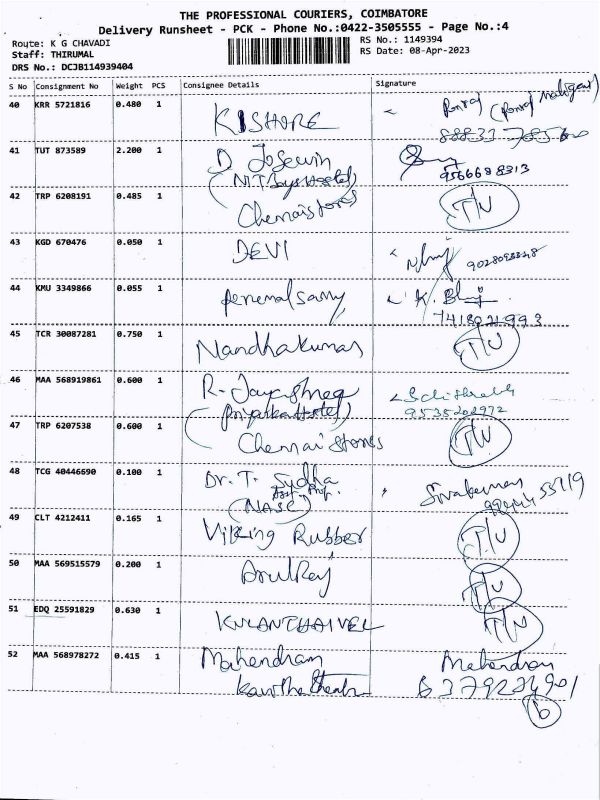 THE PROFESSIONAL COURIERS, COIMBATORE
Delivery Runsheet - PCK - Phone No.:0422-3505555 - Page No.:4
Route: K G CHAVADI RS No.: 1149394
Staff: THIRUMAL RS Date: 08-Apr-2023
DRS No.: DCJB114939404
S No Consignment No Weight PCS Consignee Details Signature
40 KRR 5721816 0.480 1 KISHORE
41 TUT 873589 2.200 1 D Joserin
9566688313
42 TRP 6208191 0.485 1 Chennai stores T/U
43 KGD 670476 0.050 1 DEVI
44 KMU 3349866 0.055 1 perumalsamy K.
7418921993
45 TCR 30087281 0.750 1 Nandhakumar T/U
46 MAA 568919861 0.600 1 R. Jayashree
(Priyanka Hostel) 9535202972
47 TRP 6207538 0.600 1 Chennai Stores T/U
48 TCG 40446690 0.100 1 Dr. T. Sudha Sivakumar
Asst. Prof.
(NASC)
49 CLT 4212411 0.165 1 Viking Rubber T/U
50 MAA 569515579 0.200 1 Arul Raj T/U
51 EDQ 25591829 0.630 1 KULANTHAIVEL T/U
52 MAA 568978272 0.415 1 Mahendran Mahendran
6379274901
6